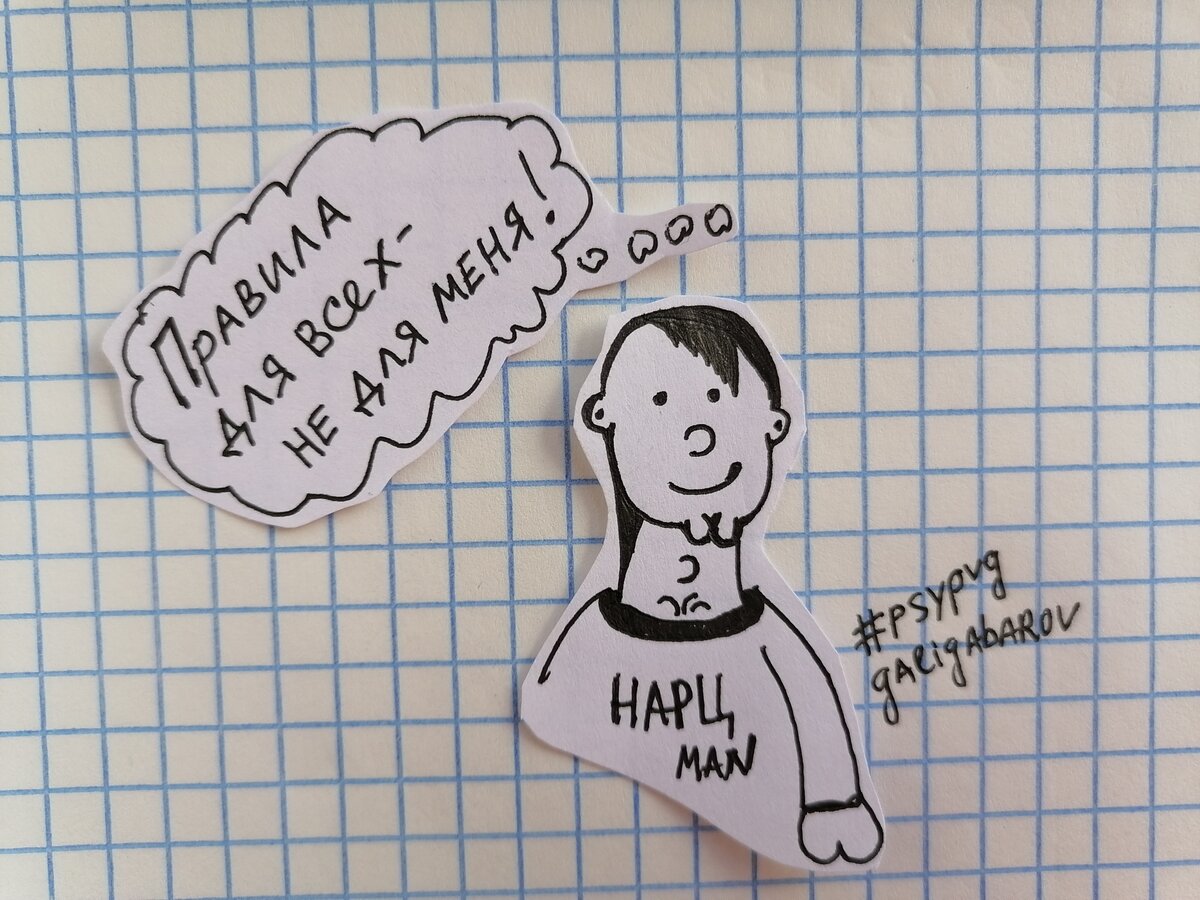 ПРАВИЛА
ДЛЯ ВСЕХ-
НЕ ДЛЯ МЕНЯ!
НАРЦ
MAN
#PSYPVG
gARigAbAROV